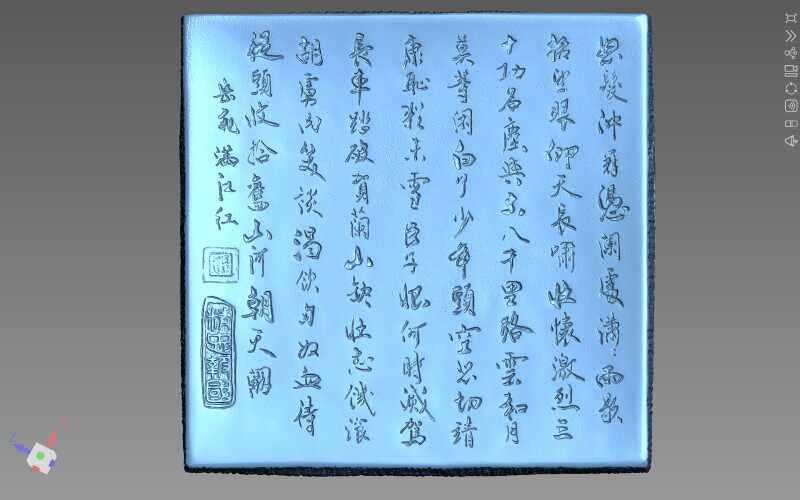 怒髮沖冠憑闌處瀟瀟雨歇
抬望眼仰天長嘯壯懷激烈三
十功名塵與土八千里路雲和月
莫等閑白了少年頭空悲切靖
康恥猶未雪臣子恨何時滅駕
長車踏破賀蘭山缺壯志饑飡
胡虜肉笑談渴飲匈奴血待
從頭收拾舊山河朝天闕
岳飛 滿江紅
精忠報國